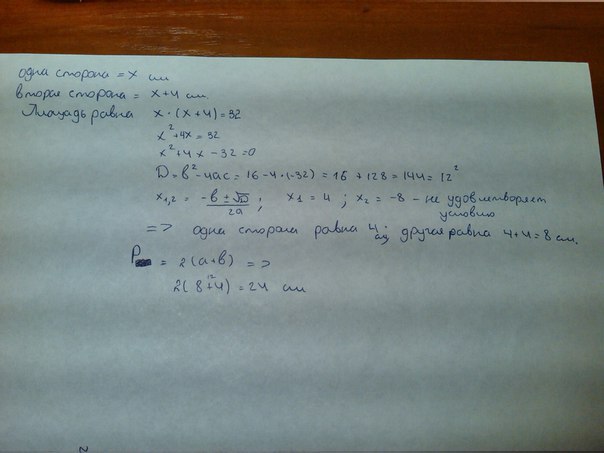 одна сторона = x см
вторая сторона = x+4 см.
Площадь равна x·(x+4)=32
x²+4x=32
x²+4x-32=0
D=в²-4ac=16-4·(-32)=16+128=144=12²
x₁,₂ = (-в±√D)/2a; x₁=4; x₂=-8 - не удовлетворяет
условию
=> одна сторона равна 4 см, другая равна 4+4=8 см.
P = 2(a+в) =>
12
2(8+4)=24 см